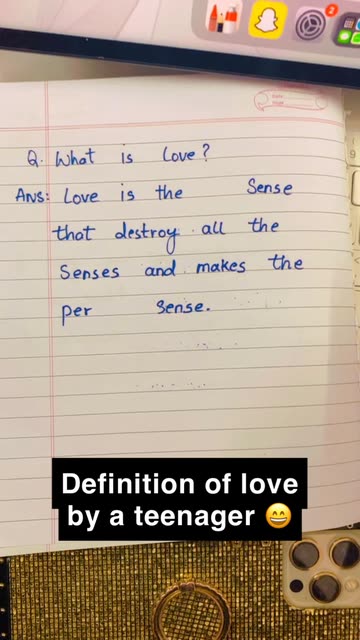 2
Q. What is Love?
Ans: Love is the Sense
that destroy all the
Senses and makes the
per Sense.
Definition of love
by a teenager 😄